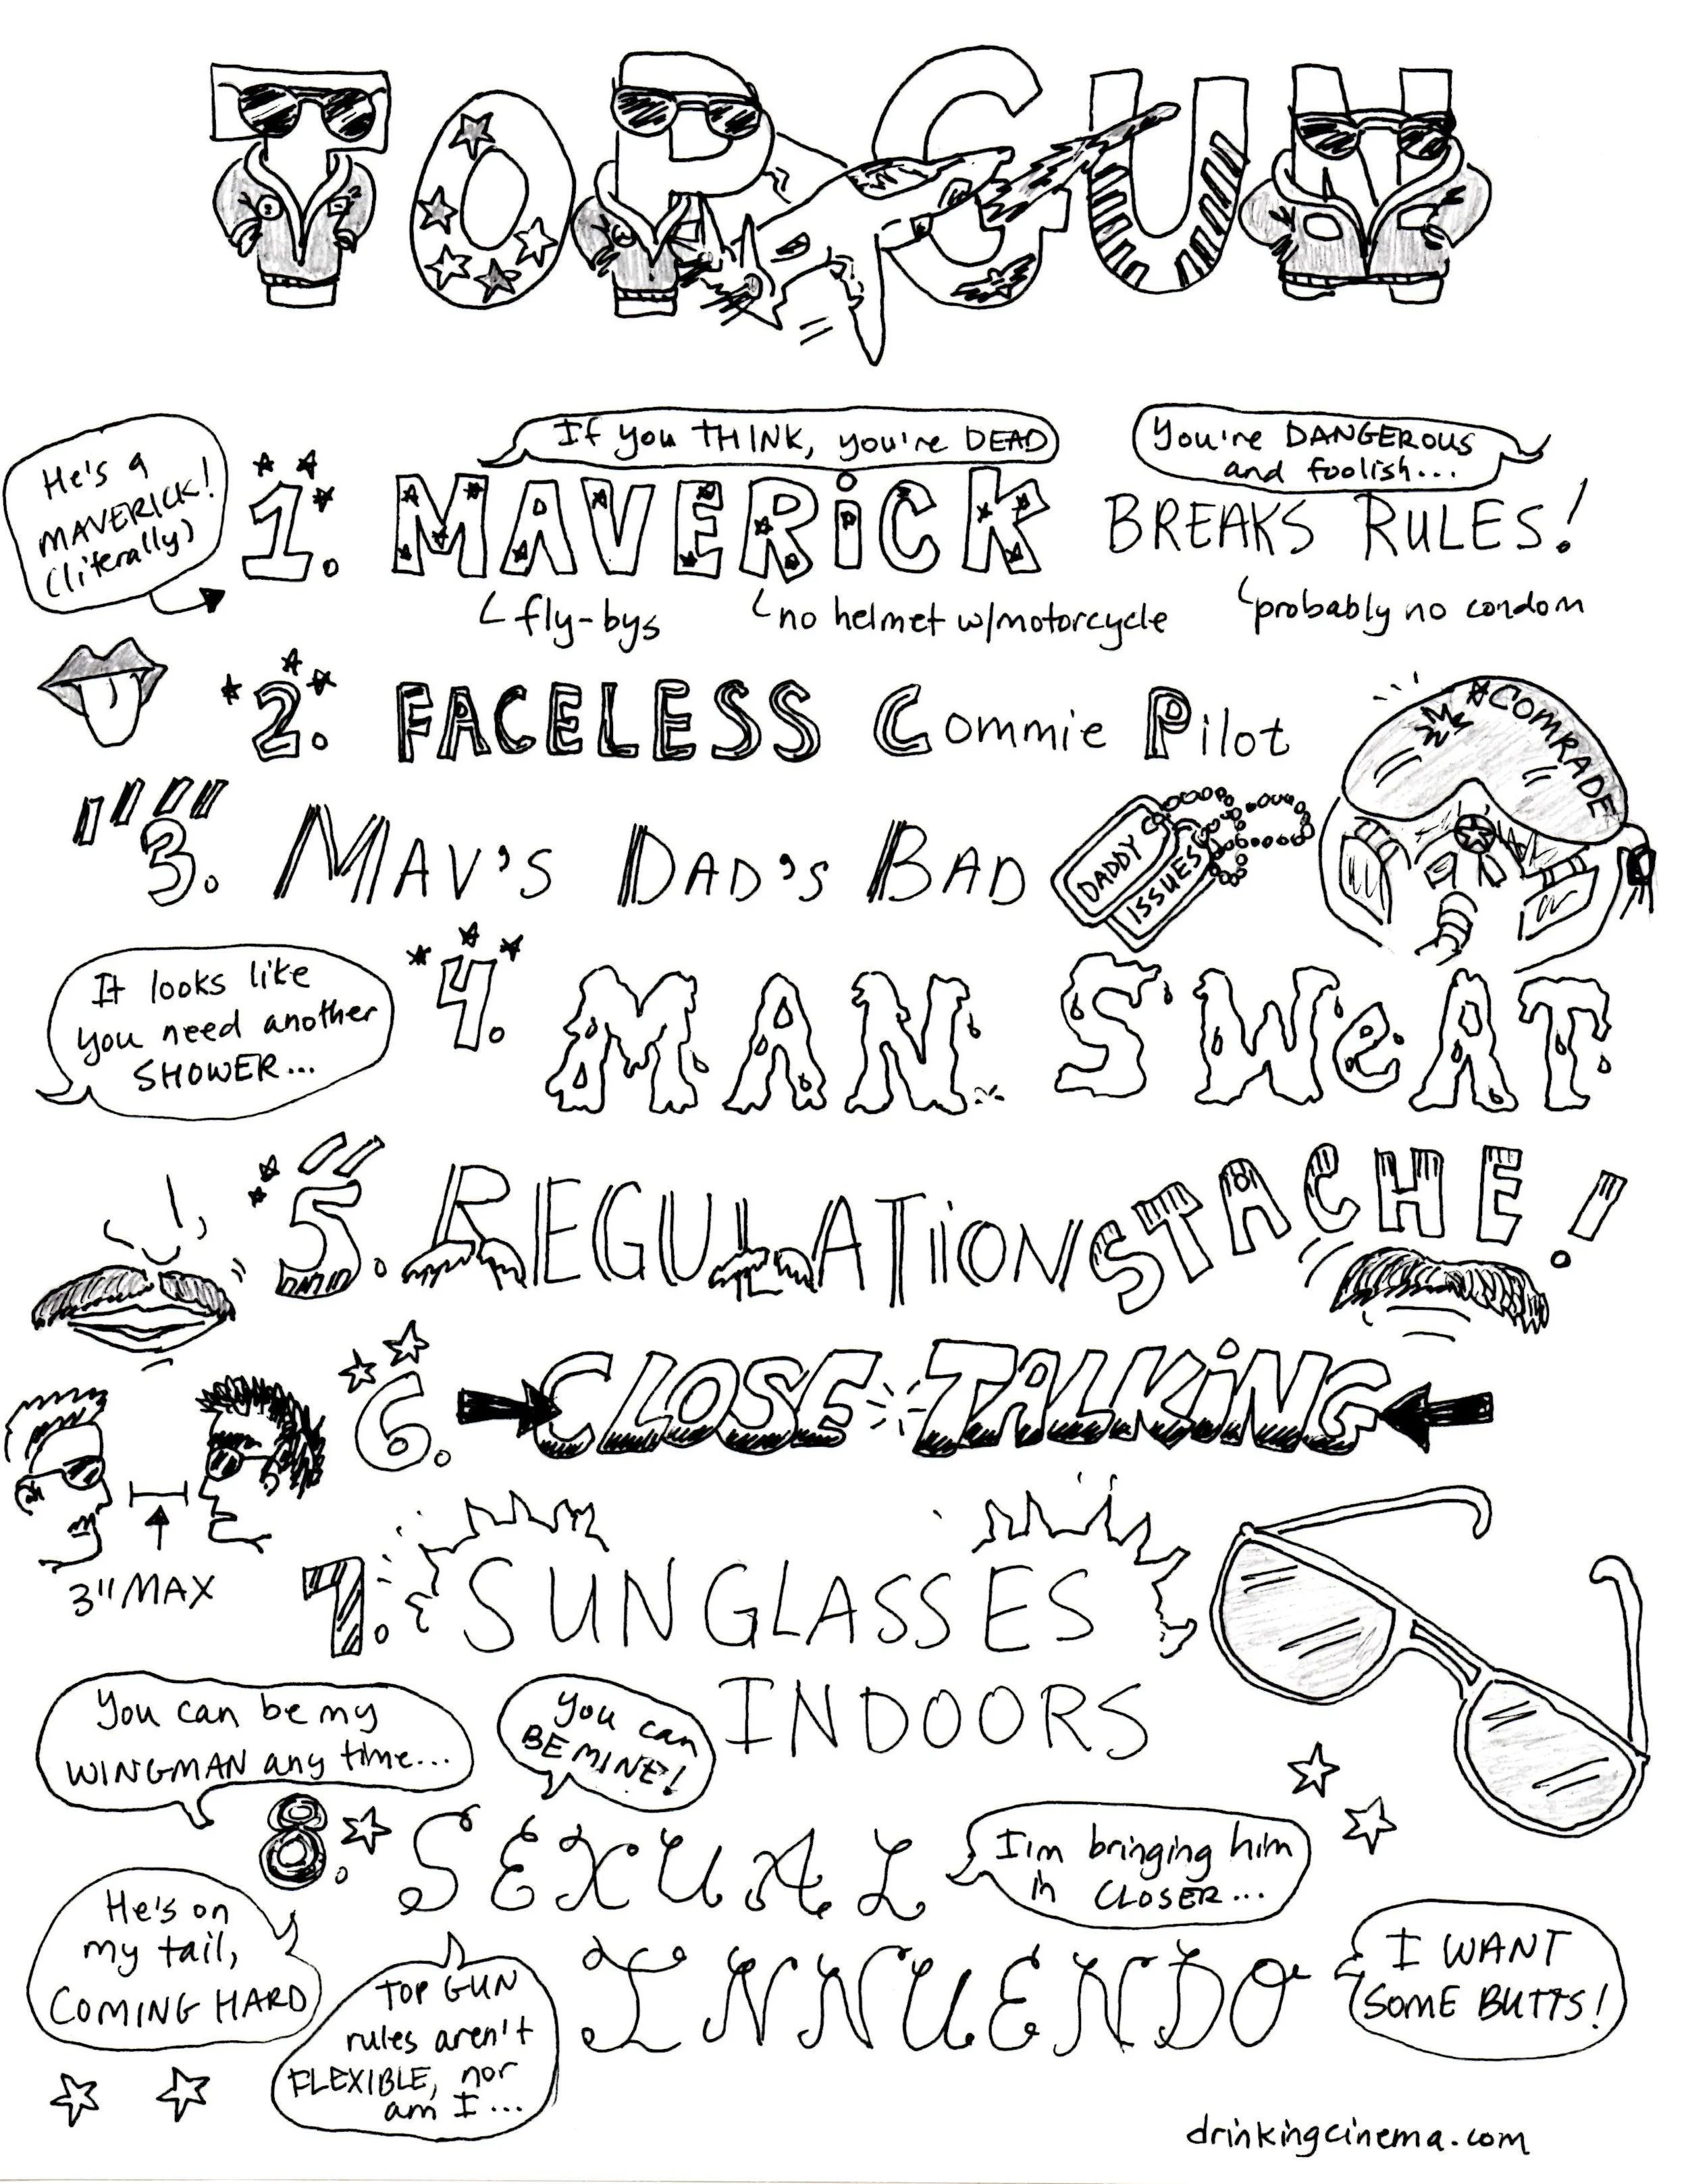 TOP GUN
If you THINK, you're DEAD
You're DANGEROUS
and foolish...
He's a
MAVERICK!
(literally)
1. MAVERiCK BREAKS RULES!
fly-bys
no helmet w/motorcycle
probably no condom
2. FACELESS Commie Pilot
#COMRADE
3. MAV'S DAD'S BAD
DADDY
ISSUES
It looks like
you need another
SHOWER...
4. MAN SWeAT
5. REGULATiON STACHE!
6. CLOSE TALKiNG
3" MAX
7. SUNGLASSES
INDOORS
You can be my
WINGMAN any time...
You can
BE MINE!
8. SEXUAL
I'm bringing him
in CLOSER...
He's on
my tail,
COMING HARD
TOP GUN
rules aren't
FLEXIBLE, nor
am I...
INNUENDO
I WANT
SOME BUTTS!
drinkingcinema.com